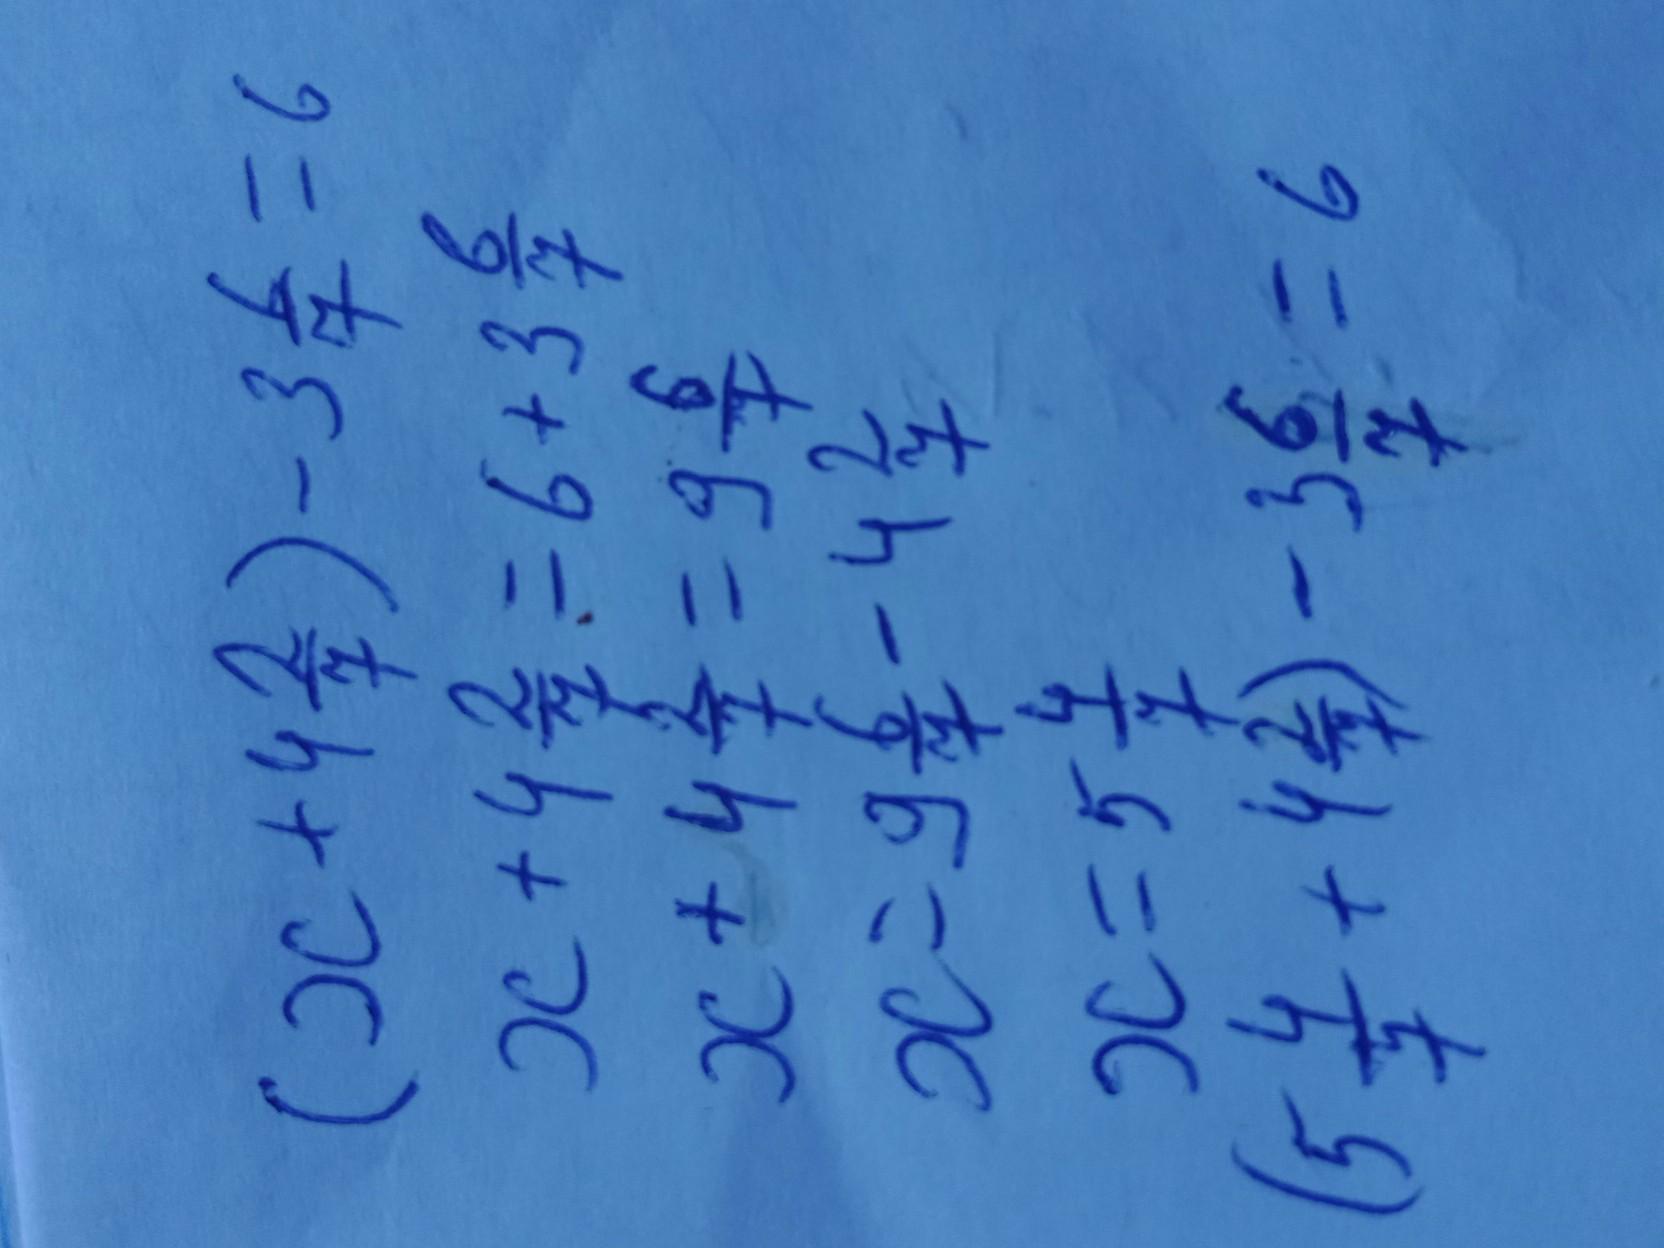 (x + 4 2/7) - 3 6/7 = 6
x + 4 2/7 = 6 + 3 6/7
x + 4 2/7 = 9 6/7
x = 9 6/7 - 4 2/7
x = 5 4/7
(5 4/7 + 4 2/7) - 3 6/7 = 6